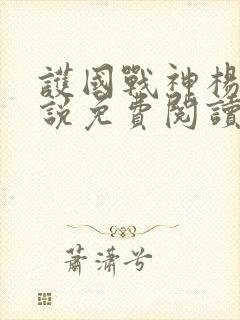 護國戰神楊
說免費閱讀
蕭瀟兮